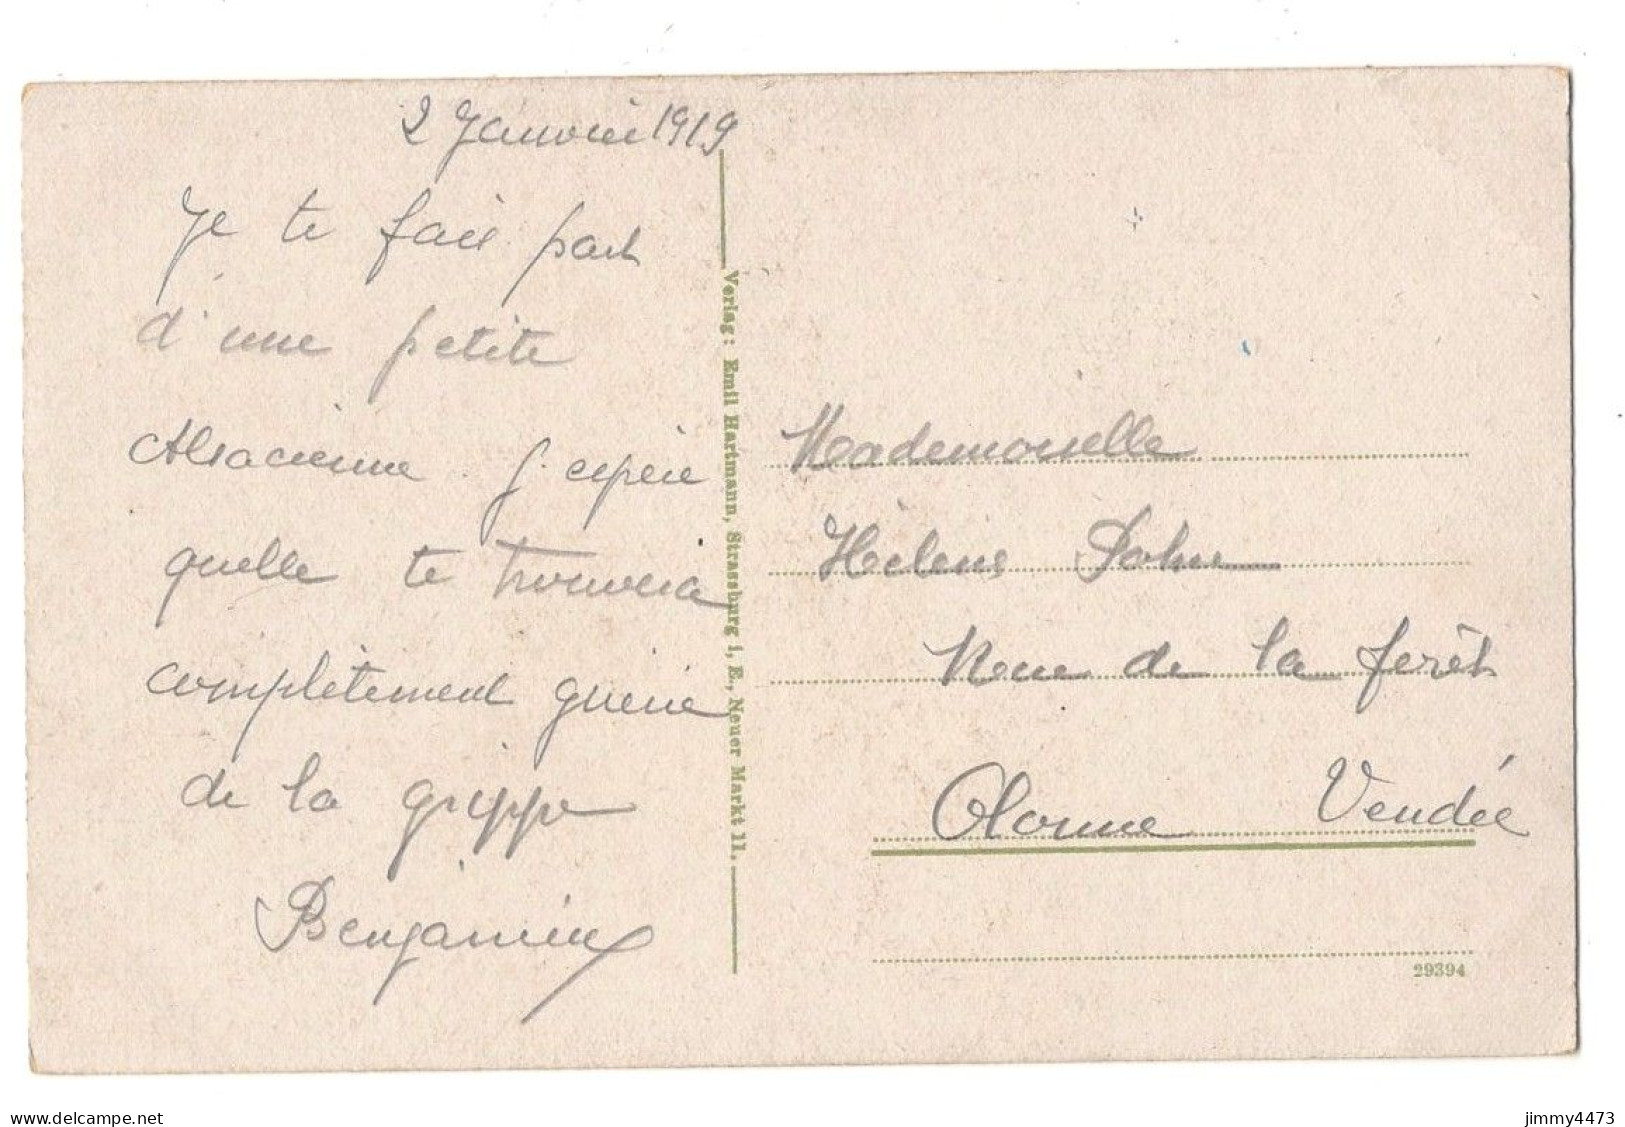 2 Janvier 1919
Je te fais part
d'une petite
Alsacienne. J'espère
quelle te trouvera
complètement guérie
de la grippe
Benjamin
Verlag: Emil Hartmann, Strassburg i, E., Neuer Markt 11.
Mademoiselle
Hélène
Roue de la forêt
Olonne Vendée
29394
delcampe.net
jimmy4473